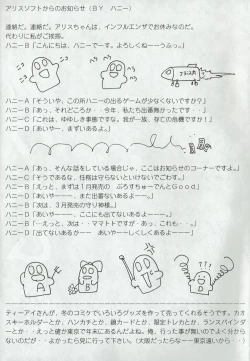 アリスソフトからのお知らせ（ＢＹ　ハニー）
連絡だ。連絡だ。アリスちゃんは、インフルエンザでお休みなのだ。
代わりに私がご挨拶。
ハニーＢ「こんにちは、ハニーでーす。よろしくねーーうふっ。」
ハニーＡ「そういや、この所ハニーの出るゲームが少なくないですか？」
ハニーＢ「あっ、それどころか・・今年、私たち出番無かったです・・」
ハニーＣ「これは、ゆゆしき事態ですな。我が一族、存亡の危機ですか！」
ハニーＤ「あいやー、まずいあるよ。」
ハニーＡ「あっ、そんな話をしている場合じゃ、ここはお知らせのコーナーですよ。」
ハニーＣ「そうであるな、任務は守らないといけないでござるな。」
ハニーＢ「えっと、まずは１月発売の　ぷろすちゅーでんとＧｏｏｄ」
ハニーＤ「あいやーー、また出番ないあるー。」
ハニーＢ「次は、３月発売の守り神様。」
ハニーＤ「あいやーー、ここにも出てないあるよーー。」
ハニーＢ「えっと、次は・・ママトトですが・・あっ、これも・・」
ハニーＤ「出てないあるかーー　あいやーーしくしくあるよーー」
ティーアイさんが、冬のコミケでいろいろグッズを作って売ってくれるそうです。カオ
スキーホルダーとか、ハンカチとか、鏡カードとか、限定トレカとか、ランスバインダ
ーとか・・えっと確か東京で年末にあるんだよね。俺、行った事が無いのでよく分から
ないのだが・・よかったら見に行って下さい。（大阪だったらなーー東京遠いから・・）